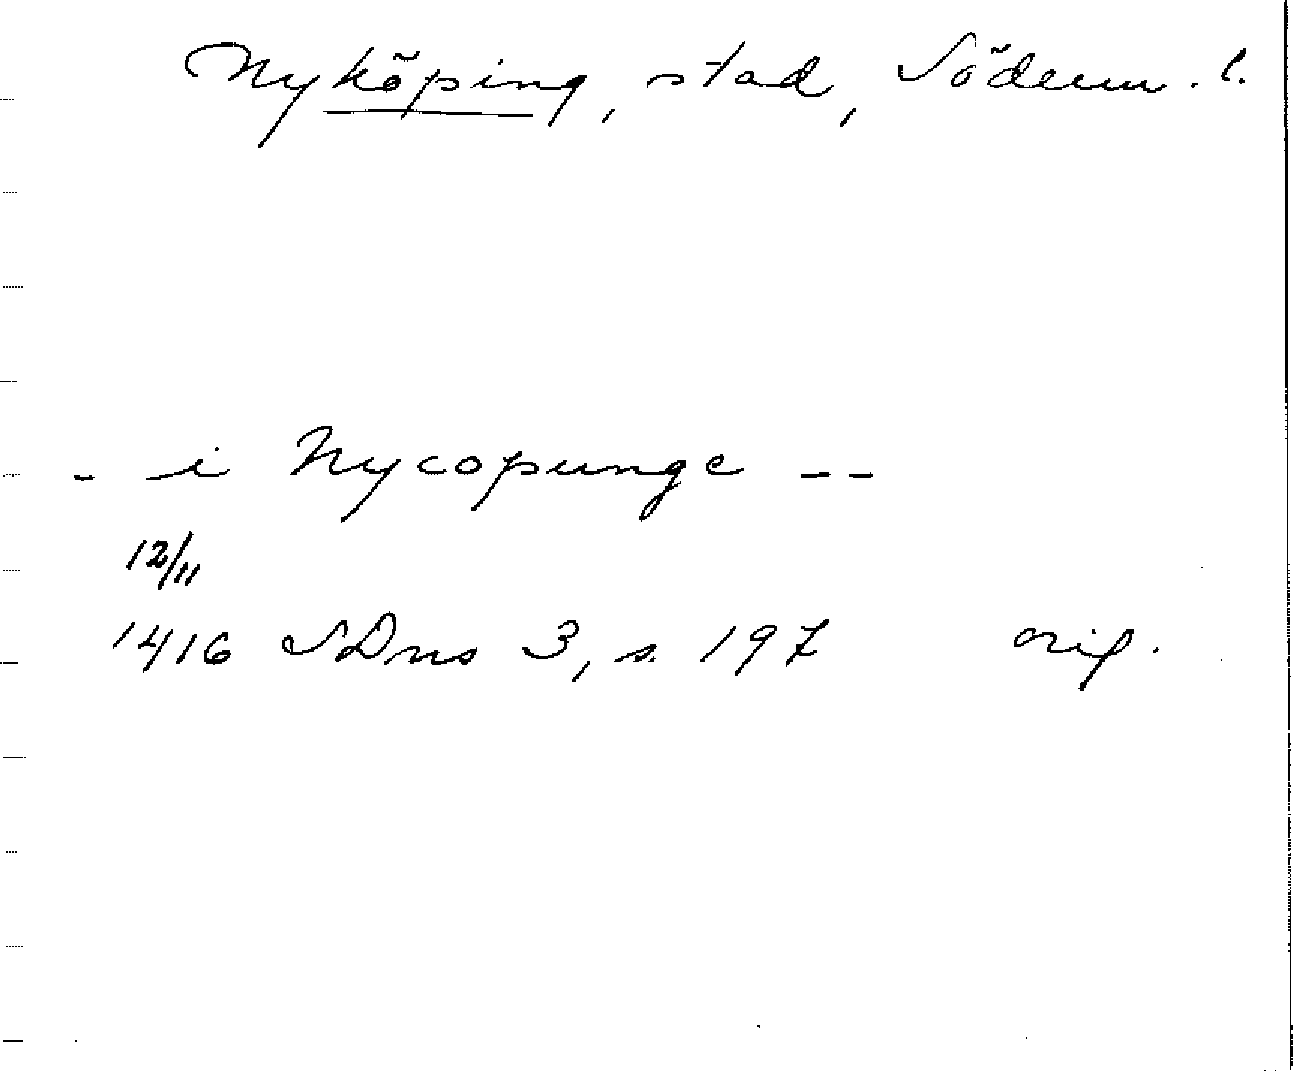 Nyköping, stad, Söderm. l.
- i Nycopunge --
12/11
1416 SDns 3, s. 197 orig.